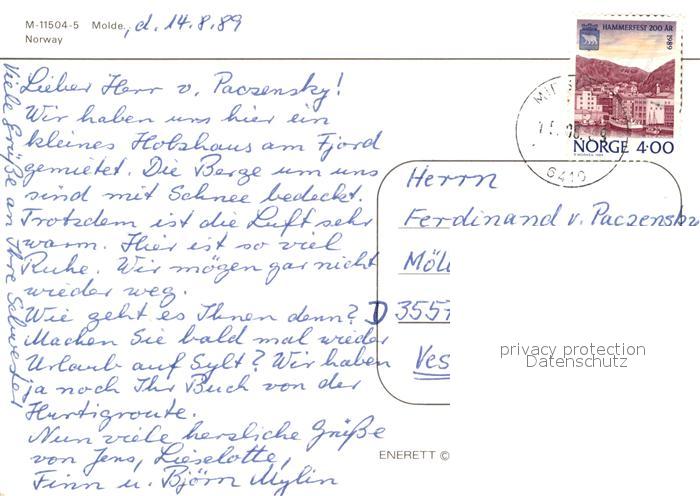 M-11504-5 Molde, d. 14.8.89
Norway
Lieber Herr v. Paczensky!
Wir haben uns hier ein
kleines Holzhaus am Fjord
gemietet. Die Berge um uns
sind mit Schnee bedeckt.
Trotzdem ist die Luft sehr
warm. Hier ist so viel
Ruhe. Wir mögen gar nicht
wieder weg.
Wie geht es Ihnen denn?
Machen Sie bald mal wieder
Urlaub auf Sylt? Wir haben
ja noch Ihr Buch von der
Hurtigroute.
Nun viele herzliche Grüße
von Jens, Lieselotte,
Finn u. Björn Mylin
Viele Grüße an Ihre Schwester
HAMMERFEST 200 ÅR
1989
NORGE 4.00
6410
Herrn
Ferdinand v. Paczensky
Möll
D 3557
Ves
privacy protection
Datenschutz
ENERETT ©